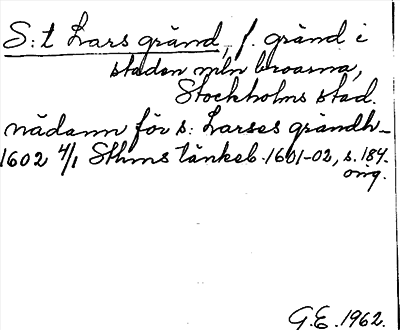 S:t Lars gränd, f. gränd i
staden mln broarna,
Stockholms stad.
nädann för s: Larses grändh-
1602 4/1 Sthms tänkeb. 1601-02, s. 184.
orig.
G.E. 1962.